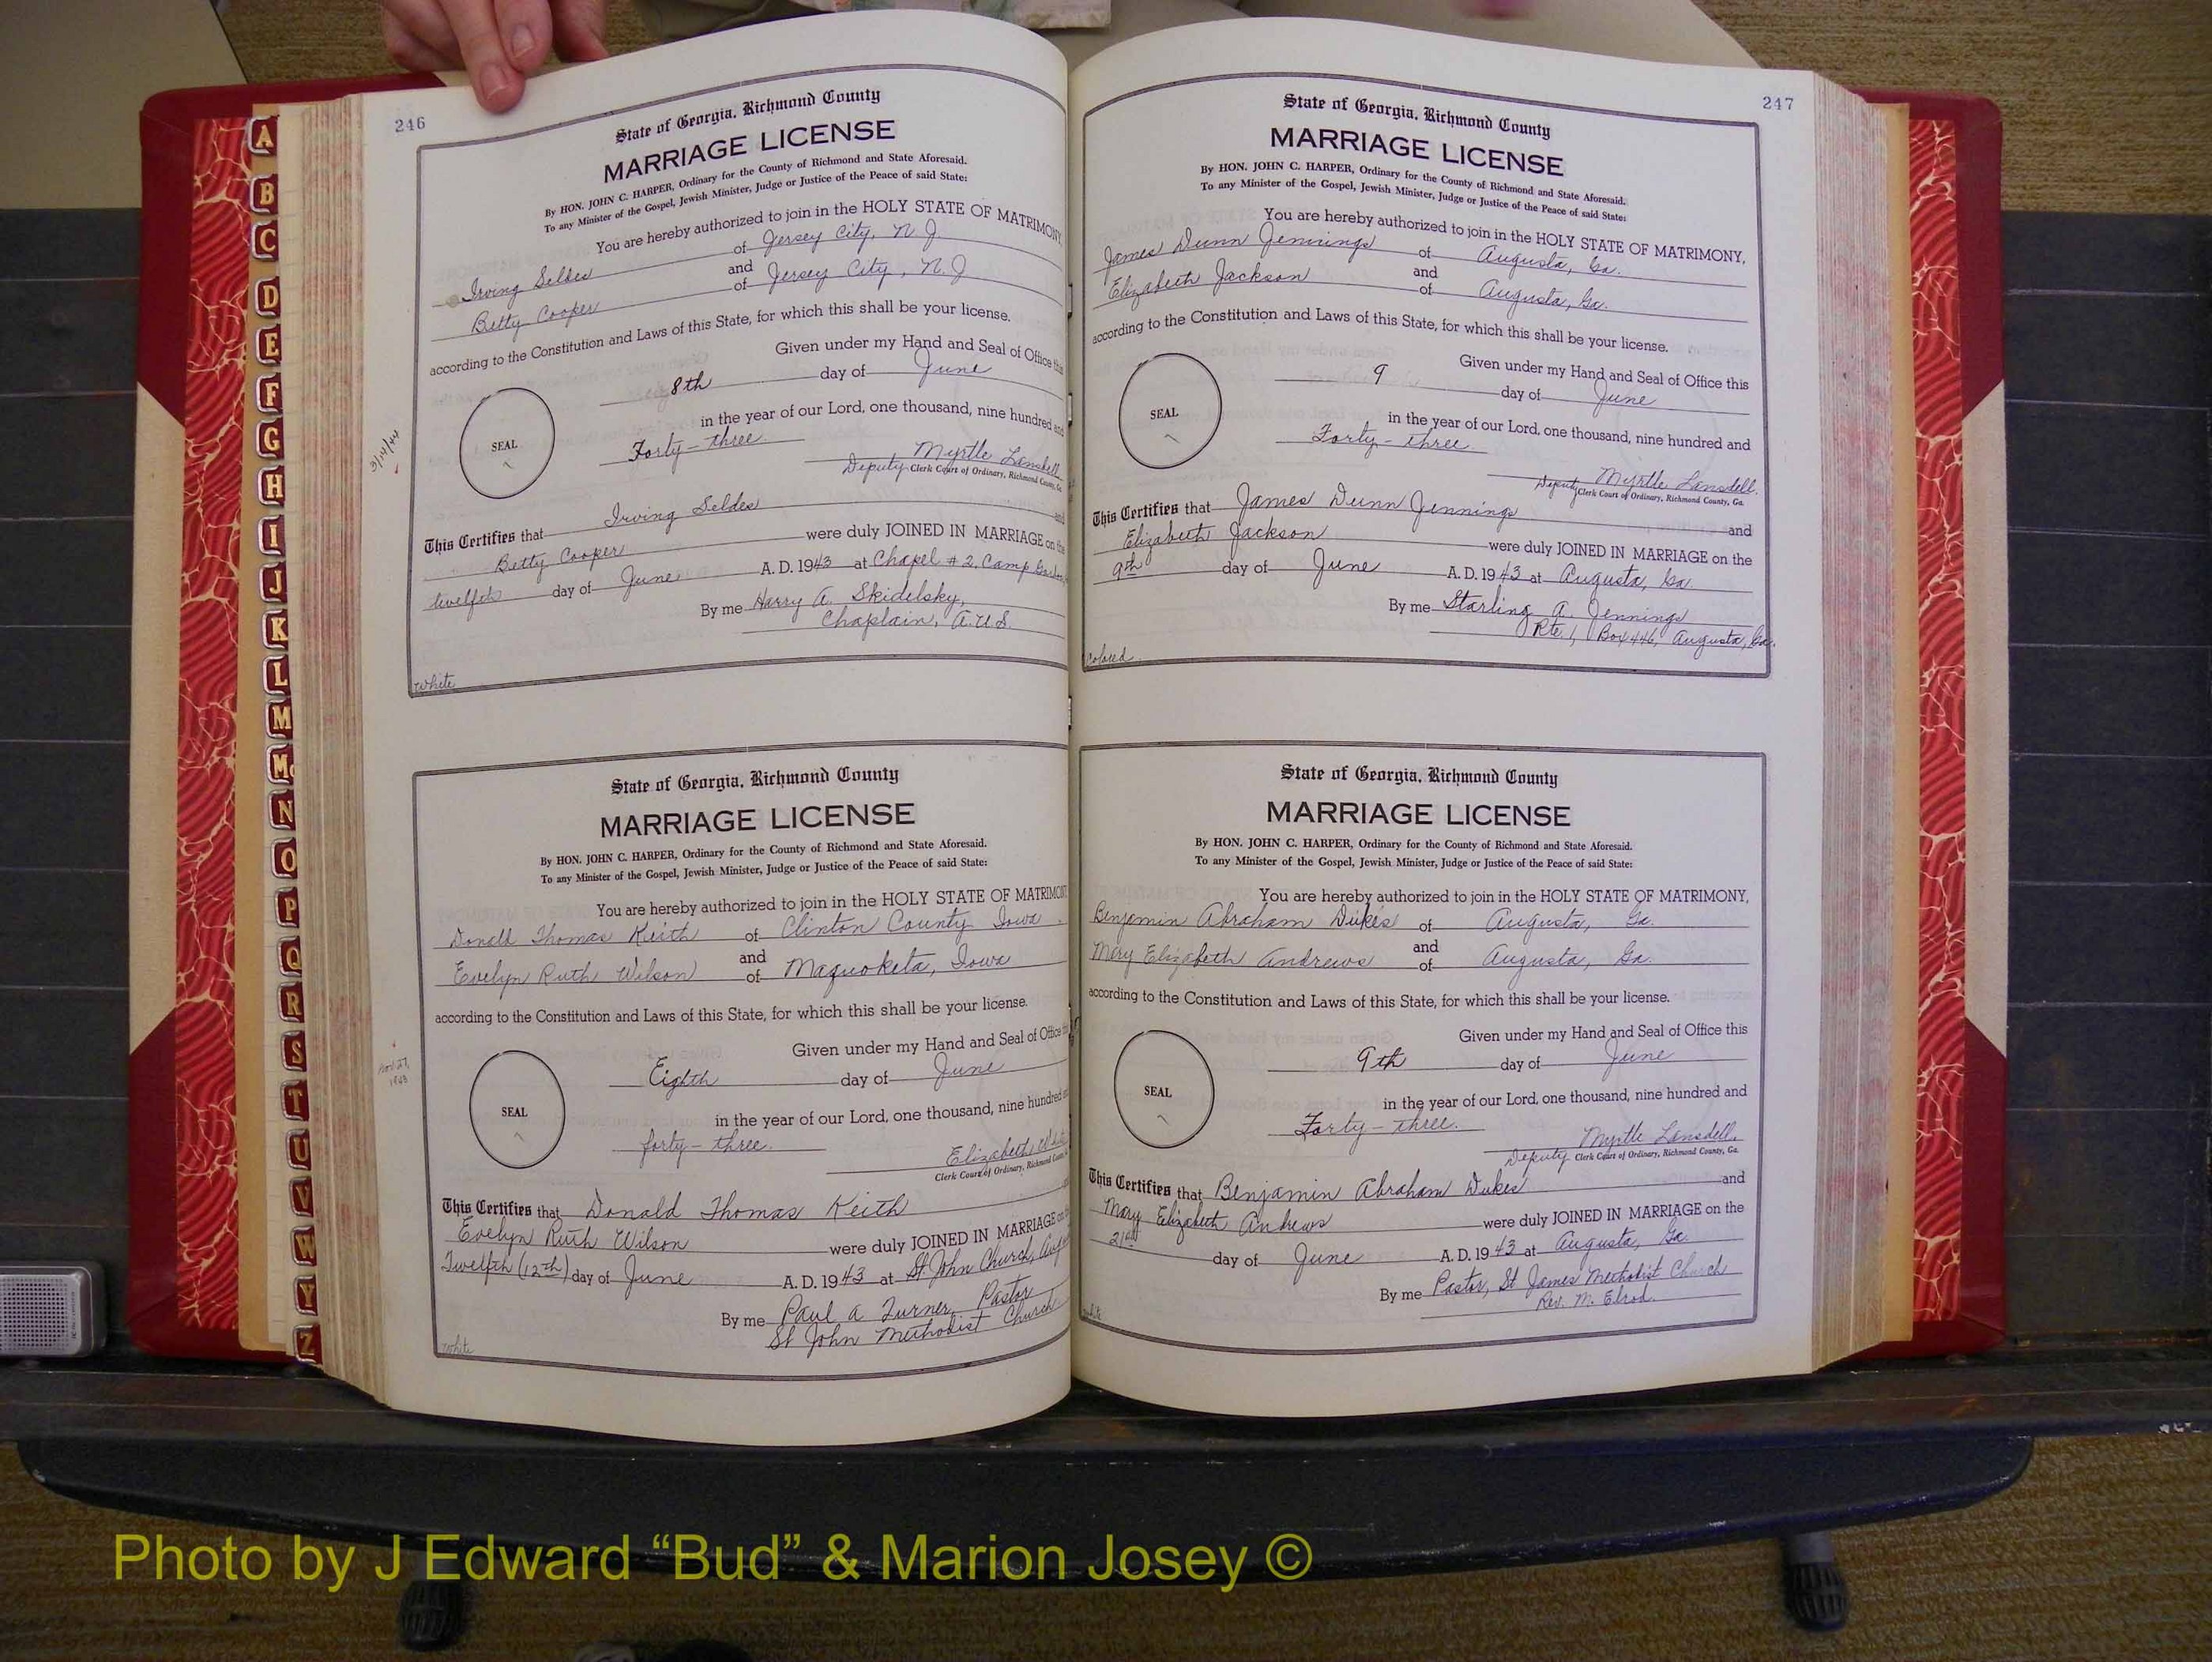 246
State of Georgia, Richmond County
MARRIAGE LICENSE
By HON. JOHN C. HARPER, Ordinary for the County of Richmond and State Aforesaid.
To any Minister of the Gospel, Jewish Minister, Judge or Justice of the Peace of said State:
You are hereby authorized to join in the HOLY STATE OF MATRIMONY,
Irving Seldes of Jersey City, N.J.
and
Betty Cooper of Jersey City, N.J
according to the Constitution and Laws of this State, for which this shall be your license.
Given under my Hand and Seal of Office this
8th day of June
in the year of our Lord, one thousand, nine hundred and
Forty-three
SEAL
3/14/44
Myrtle Lansdell
Deputy Clerk Court of Ordinary, Richmond County, Ga.
This Certifies that Irving Seldes and
Betty Cooper were duly JOINED IN MARRIAGE on the
twelfth day of June A. D. 1943 at Chapel #2, Camp
By me Harry A. Skidelsky,
Chaplain, A.U.S.
White
State of Georgia, Richmond County
MARRIAGE LICENSE
By HON. JOHN C. HARPER, Ordinary for the County of Richmond and State Aforesaid.
To any Minister of the Gospel, Jewish Minister, Judge or Justice of the Peace of said State:
You are hereby authorized to join in the HOLY STATE OF MATRIMO
Donald Thomas Keith of Clinton County Iowa
and
Evelyn Ruth Wilson of Maquoketa, Iowa
according to the Constitution and Laws of this State, for which this shall be your license.
Given under my Hand and Seal of Office
Eighth day of June
in the year of our Lord, one thousand, nine hundred
forty-three.
SEAL
Nov. 27,
1943
Elizabeth
Clerk Court of Ordinary, Richmond
This Certifies that Donald Thomas Keith
Evelyn Ruth Wilson were duly JOINED IN MARRIAGE on
Twelfth (12th) day of June A. D. 1943 at St John Church,
By me Paul A Turner, Pastor
St John Methodist Church
White
247
State of Georgia, Richmond County
MARRIAGE LICENSE
By HON. JOHN C. HARPER, Ordinary for the County of Richmond and State Aforesaid.
To any Minister of the Gospel, Jewish Minister, Judge or Justice of the Peace of said State:
You are hereby authorized to join in the HOLY STATE OF MATRIMONY,
James Dunn Jennings of Augusta, Ga.
and
Elizabeth Jackson of Augusta, Ga.
according to the Constitution and Laws of this State, for which this shall be your license.
Given under my Hand and Seal of Office this
9 day of June
in the year of our Lord, one thousand, nine hundred and
Forty-three
SEAL
Myrtle Lansdell.
Deputy Clerk Court of Ordinary, Richmond County, Ga.
This Certifies that James Dunn Jennings and
Elizabeth Jackson were duly JOINED IN MARRIAGE on the
9th day of June A. D. 1943 at Augusta, Ga.
By me Starling A. Jennings
Rte. 1, Box 446, Augusta, Ga.
Colored
State of Georgia, Richmond County
MARRIAGE LICENSE
By HON. JOHN C. HARPER, Ordinary for the County of Richmond and State Aforesaid.
To any Minister of the Gospel, Jewish Minister, Judge or Justice of the Peace of said State:
You are hereby authorized to join in the HOLY STATE OF MATRIMONY,
Benjamin Abraham Dukes of Augusta, Ga.
and
Mary Elizabeth Andrews of Augusta, Ga.
according to the Constitution and Laws of this State, for which this shall be your license.
Given under my Hand and Seal of Office this
9th day of June
in the year of our Lord, one thousand, nine hundred and
Forty-three.
SEAL
Myrtle Lansdell,
Deputy Clerk Court of Ordinary, Richmond County, Ga.
This Certifies that Benjamin Abraham Dukes and
Mary Elizabeth Andrews were duly JOINED IN MARRIAGE on the
21st day of June A. D. 1943 at Augusta, Ga.
By me Pastor, St James Methodist Church
Rev. M. Elrod.
White
A
B
C
D
E
F
G
H
I
J
K
L
M
Mc
N
O
P
Q
R
S
T
U
V
W
Y
Z
Photo by J Edward “Bud” & Marion Josey ©